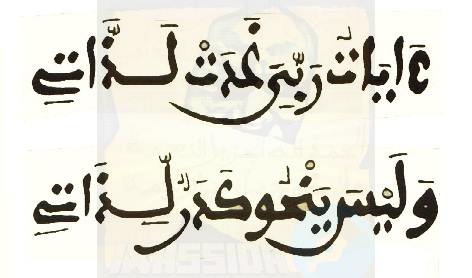 ءَايَاتُ رَبِّي غَدَتْ لَـذَّاتِي
وَلَيْسَ يَنْحُو كَدَرٌ لِـذَاتِي